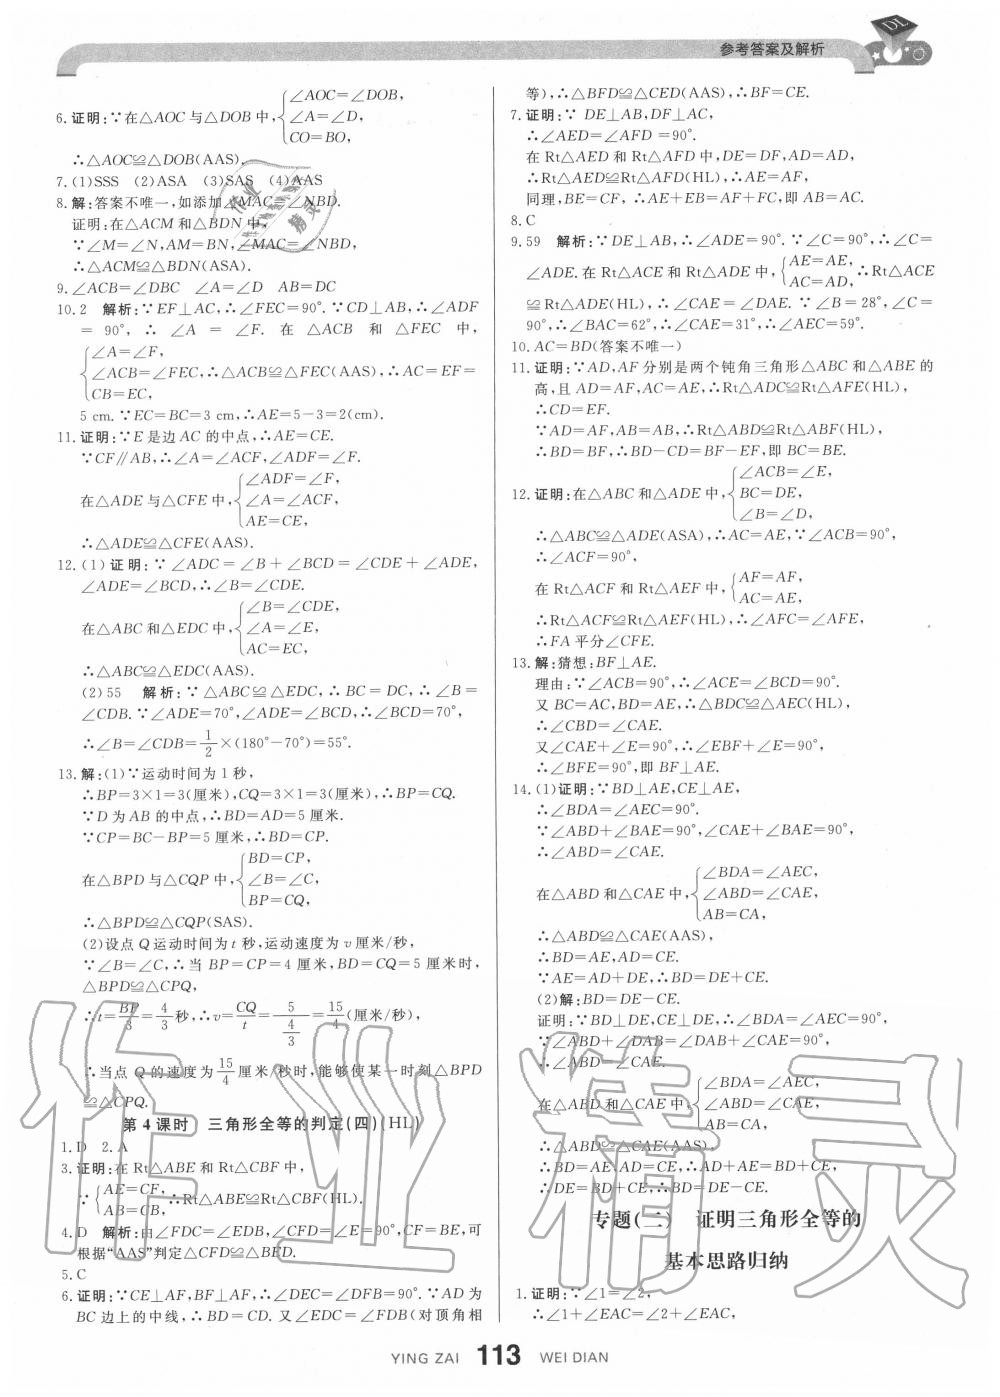 DL
参考答案及解析
6.证明:∵在△AOC与△DOB中,{∠AOC=∠DOB,
∠A=∠D,
CO=BO,
∴△AOC≌△DOB(AAS).
7.(1)SSS (2)ASA (3)SAS (4)AAS
8.解:答案不唯一,如添加∠MAC=∠NBD.
证明:在△ACM和△BDN中,
∵∠M=∠N,AM=BN,∠MAC=∠NBD,
∴△ACM≌△BDN(ASA).
9.∠ACB=∠DBC ∠A=∠D AB=DC
10.2 解析:∵EF⊥AC,∴∠FEC=90°.∵CD⊥AB,∴∠ADF
=90°,∴∠A=∠F.在△ACB和△FEC中,
{∠A=∠F,
∠ACB=∠FEC,∴△ACB≌△FEC(AAS),∴AC=EF=
CB=EC,
5 cm.∵EC=BC=3 cm,∴AE=5-3=2(cm).
11.证明:∵E是边AC的中点,∴AE=CE.
∵CF∥AB,∴∠A=∠ACF,∠ADF=∠F.
在△ADE与△CFE中,{∠ADF=∠F,
∠A=∠ACF,
AE=CE,
∴△ADE≌△CFE(AAS).
12.(1)证明:∵∠ADC=∠B+∠BCD=∠CDE+∠ADE,
∠ADE=∠BCD,∴∠B=∠CDE.
在△ABC和△EDC中,{∠B=∠CDE,
∠A=∠E,
AC=EC,
∴△ABC≌△EDC(AAS).
(2)55 解析:∵△ABC≌△EDC,∴BC=DC,∴∠B=
∠CDB.∵∠ADE=70°,∠ADE=∠BCD,∴∠BCD=70°,
∴∠B=∠CDB=1/2×(180°-70°)=55°.
13.解:(1)∵运动时间为1秒,
∴BP=3×1=3(厘米),CQ=3×1=3(厘米),∴BP=CQ.
∵D为AB的中点,∴BD=AD=5厘米.
∵CP=BC-BP=5厘米,∴BD=CP.
在△BPD与△CQP中,{BD=CP,
∠B=∠C,
BP=CQ,
∴△BPD≌△CQP(SAS).
(2)设点Q运动时间为t秒,运动速度为v厘米/秒,
∵∠B=∠C,∴当BP=CP=4厘米,BD=CQ=5厘米时,
△BPD≌△CPQ,
∴t=BP/3=4/3秒,∴v=CQ/t=5/(4/3)=15/4(厘米/秒),
∴当点Q的速度为15/4厘米/秒时,能够使某一时刻△BPD
≌△CPQ.
第4课时 三角形全等的判定(四)(HL)
1.D 2.A
3.证明:在Rt△ABE和Rt△CBF中,
∵{AE=CF,
AB=CB,∴Rt△ABE≌Rt△CBF(HL).
4.D 解析:由∠FDC=∠EDB,∠CFD=∠E=90°,CF=BE,可
根据“AAS”判定△CFD≌△BED.
5.C
6.证明:∵CE⊥AF,BF⊥AF,∴∠DEC=∠DFB=90°.∵AD为
BC边上的中线,∴BD=CD.又∠EDC=∠FDB(对顶角相
等),∴△BFD≌△CED(AAS),∴BF=CE.
7.证明:∵DE⊥AB,DF⊥AC,
∴∠AED=∠AFD=90°.
在Rt△AED和Rt△AFD中,DE=DF,AD=AD,
∴Rt△AED≌Rt△AFD(HL),∴AE=AF,
同理,BE=CF,∴AE+EB=AF+FC,即AB=AC.
8.C
9.59 解析:∵DE⊥AB,∴∠ADE=90°.∵∠C=90°,∴∠C=
∠ADE.在Rt△ACE和Rt△ADE中,{AE=AE,
AC=AD,∴Rt△ACE
≌Rt△ADE(HL),∴∠CAE=∠DAE.∵∠B=28°,∠C=
90°,∴∠BAC=62°,∴∠CAE=31°,∴∠AEC=59°.
10.AC=BD(答案不唯一)
11.证明:∵AD,AF分别是两个钝角三角形△ABC和△ABE的
高,且AD=AF,AC=AE,∴Rt△ADC≌Rt△AFE(HL),
∴CD=EF.
∵AD=AF,AB=AB,∴Rt△ABD≌Rt△ABF(HL),
∴BD=BF,∴BD-CD=BF-EF,即BC=BE.
12.证明:在△ABC和△ADE中,{∠ACB=∠E,
BC=DE,
∠B=∠D,
∴△ABC≌△ADE(ASA),∴AC=AE,∵∠ACB=90°,
∴∠ACF=90°,
在Rt△ACF和Rt△AEF中,{AF=AF,
AC=AE,
∴Rt△ACF≌Rt△AEF(HL),∴∠AFC=∠AFE,
∴FA平分∠CFE.
13.解:猜想:BF⊥AE.
理由:∵∠ACB=90°,∴∠ACE=∠BCD=90°.
又BC=AC,BD=AE,∴△BDC≌△AEC(HL),
∴∠CBD=∠CAE.
又∠CAE+∠E=90°,∴∠EBF+∠E=90°,
∴∠BFE=90°,即BF⊥AE.
14.(1)证明:∵BD⊥AE,CE⊥AE,
∴∠BDA=∠AEC=90°.
∵∠ABD+∠BAE=90°,∠CAE+∠BAE=90°,
∴∠ABD=∠CAE.
在△ABD和△CAE中,{∠BDA=∠AEC,
∠ABD=∠CAE,
AB=CA,
∴△ABD≌△CAE(AAS),
∴BD=AE,AD=CE.
∵AE=AD+DE,∴BD=DE+CE.
(2)解:BD=DE-CE.
证明:∵BD⊥DE,CE⊥DE,∴∠BDA=∠AEC=90°,
∵∠ABD+∠DAB=∠DAB+∠CAE=90°,
∴∠ABD=∠CAE.
在△ABD和△CAE中,{∠BDA=∠AEC,
∠ABD=∠CAE,
AB=CA,
∴△ABD≌△CAE(AAS),
∴BD=AE,AD=CE,∴AD+AE=BD+CE,
∴DE=BD+CE,∴BD=DE-CE.
专题(二) 证明三角形全等的
基本思路归纳
1.证明:∵∠1=∠2,
∴∠1+∠EAC=∠2+∠EAC,
YING ZAI 113 WEI DIAN
作业精灵